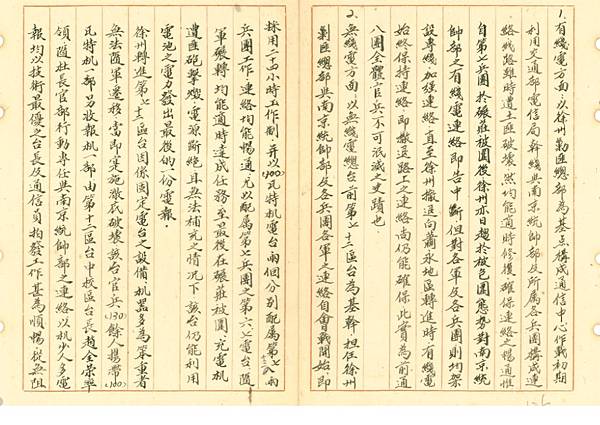 1. 有綫電方面：以徐州勦匪總部為基点構成通信中心作戰初期
利用交通部電信局幹綫與南京統帥部及所屬各兵團構成連
絡綫路雖時遭土匪破壞然均能適時修復確保連絡之暢通惟
自第七兵團於碾莊被圍後徐州亦日趨於被包圍態勢對南京統
帥部之有綫電連絡即告中斷但對各軍及各兵團則均架
設專綫加強連絡直至徐州撤退向蕭永地區轉進時有綫電
始終保持連絡即撤退途上之連絡尚仍能確保此實為前通
八團全體官兵不可泯滅之史蹟也
2. 無綫電方面：以無綫電總台前第七十三區台為基幹担任徐州
勦匪總部與南京統帥部及各兵團各軍之連絡自會戰開始即
採用二十四小時工作制并以(400)瓦特机電台兩個分別配屬第七、十三兩
兵團工作連絡均能暢通尤以配屬第七兵團之第六七電台隨
軍碾轉均能適時達成任務至最後在碾莊被圍充電机
遭匪砲擊燬電源斷絕且無法補充之情況下該台仍能利用
電池之電力發出最後的一份電報。
徐州轉進第七十三區台因係固定電台之設備机器多為笨重者
無法隨軍遷移當即實施澈底破壞該台官兵(130)餘人携帶(100)
瓦特机一部另收報机一部由第十三區台中校區台長趙金榮率
領隨杜長官部行動專任與南京統帥部之連絡以机少人多電
報均以技術最優之台長及通信員拍發工作甚為順暢從無阻